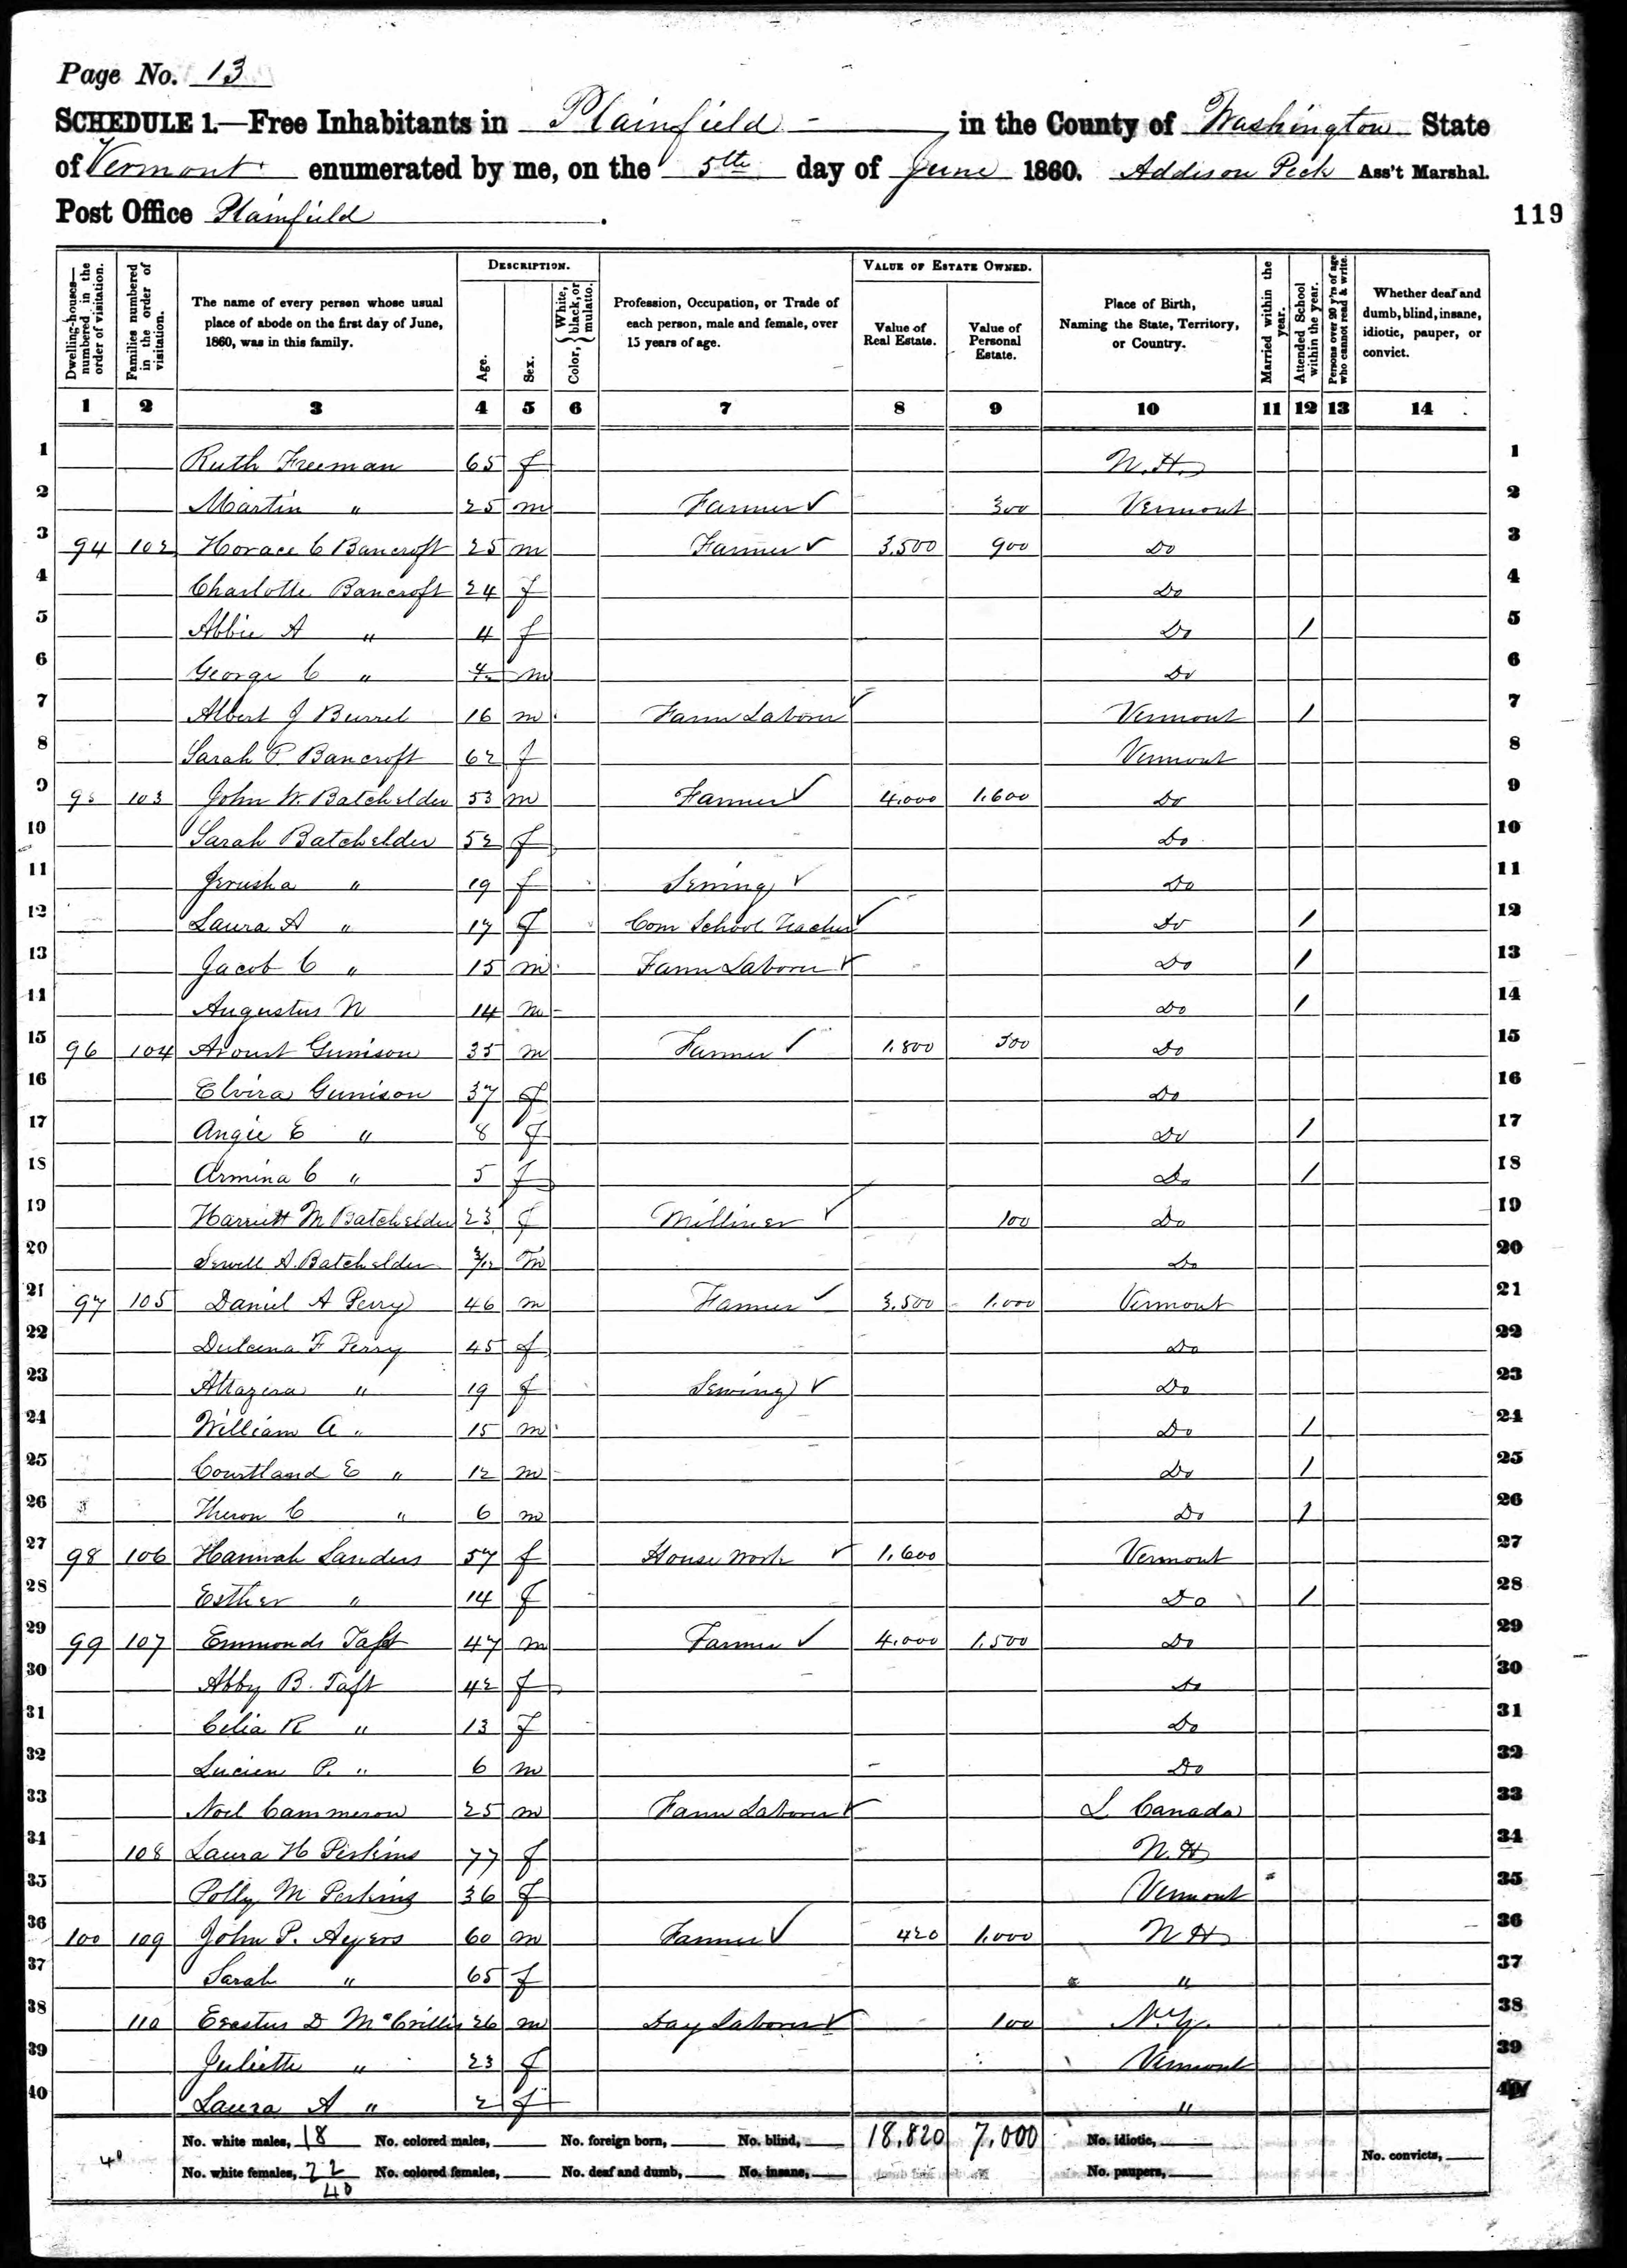 Page No. 13
SCHEDULE 1.—Free Inhabitants in Plainfield in the County of Washington State
of Vermont enumerated by me, on the 5th day of June 1860. Addison Peck Ass't Marshal.
Post Office Plainfield
119
Dwelling-houses—numbered in the order of visitation. Families numbered in the order of visitation. The name of every person whose usual place of abode on the first day of June, 1860, was in this family. DESCRIPTION. Age. Sex. Color, {White, black, or mulatto. Profession, Occupation, or Trade of each person, male and female, over 15 years of age. VALUE OF ESTATE OWNED. Value of Real Estate. Value of Personal Estate. Place of Birth, Naming the State, Territory, or Country. Married within the year. Attended School within the year. Persons over 20 y'rs of age who cannot read & write. Whether deaf and dumb, blind, insane, idiotic, pauper, or convict.
1 2 3 4 5 6 7 8 9 10 11 12 13 14
1 Ruth Freeman 65 f N.H. 1
2 Martin " 25 m Farmer ✓ 300 Vermont 2
3 94 102 Horace C Bancroft 25 m Farmer ✓ 3,500 900 Do 3
4 Charlotte Bancroft 24 f Do 4
5 Abbie A " 4 f Do / 5
6 George C " m Do 6
7 Albert J Burrel 16 m Farm Laborer ✓ Vermont / 7
8 Sarah P. Bancroft 62 f Vermont 8
9 95 103 John W. Batchelder 53 m Farmer ✓ 4,000 1,600 Do 9
10 Sarah Batchelder 52 f Do 10
11 Jerusha " 19 f Sewing ✓ Do 11
12 Laura A " 17 f Com School Teacher ✓ Do / 12
13 Jacob C " 15 m Farm Laborer ✓ Do / 13
14 Augustus N 14 m Do / 14
15 96 104 Gunison 35 m Farmer ✓ 1,800 500 Do 15
16 Elvira Gunison 37 f Do 16
17 Angie E " 8 f Do / 17
18 Armina C " 5 f Do / 18
19 Harriett M Batchelder 23 f Milliner ✓ 100 Do 19
20 Sewell A. Batchelder 3/12 m Do 20
21 97 105 Daniel A Perry 46 m Farmer ✓ 3,500 1,000 Vermont 21
22 Dulcena F Perry 45 f Do 22
23 Altazera " 19 f Sewing ✓ Do 23
24 William A " 15 m Do / 24
25 Courtland E " 12 m Do / 25
26 Theron C " 6 m Do / 26
27 98 106 Hannah Sanders 57 f House Work ✓ 1,600 Vermont 27
28 Esther " 14 f Do / 28
29 99 107 Emmonds Taft 47 m Farmer ✓ 4,000 1,500 Do 29
30 Abby B. Taft 42 f Do 30
31 Celia R " 13 f Do 31
32 Lucien P. " 6 m Do 32
33 Noel Cammeron 25 m Farm Laborer ✓ L Canada 33
34 108 Laura H Perkins 77 f N.H 34
35 Polly M Perkins 36 f Vermont 35
36 100 109 John P. Ayers 60 m Farmer ✓ 420 1,000 N H 36
37 Sarah " 65 f " 37
38 110 Erastus D McCrillis 26 m Day Laborer ✓ 100 N.Y. 38
39 Juliette " 23 f Vermont 39
40 Laura A " 2 f " 40
40 No. white males, 18 No. colored males, No. foreign born, No. blind, 18,820 7,000 No. idiotic, No. convicts,
No. white females, 22 No. colored females, No. deaf and dumb, No. insane, No. paupers,
40